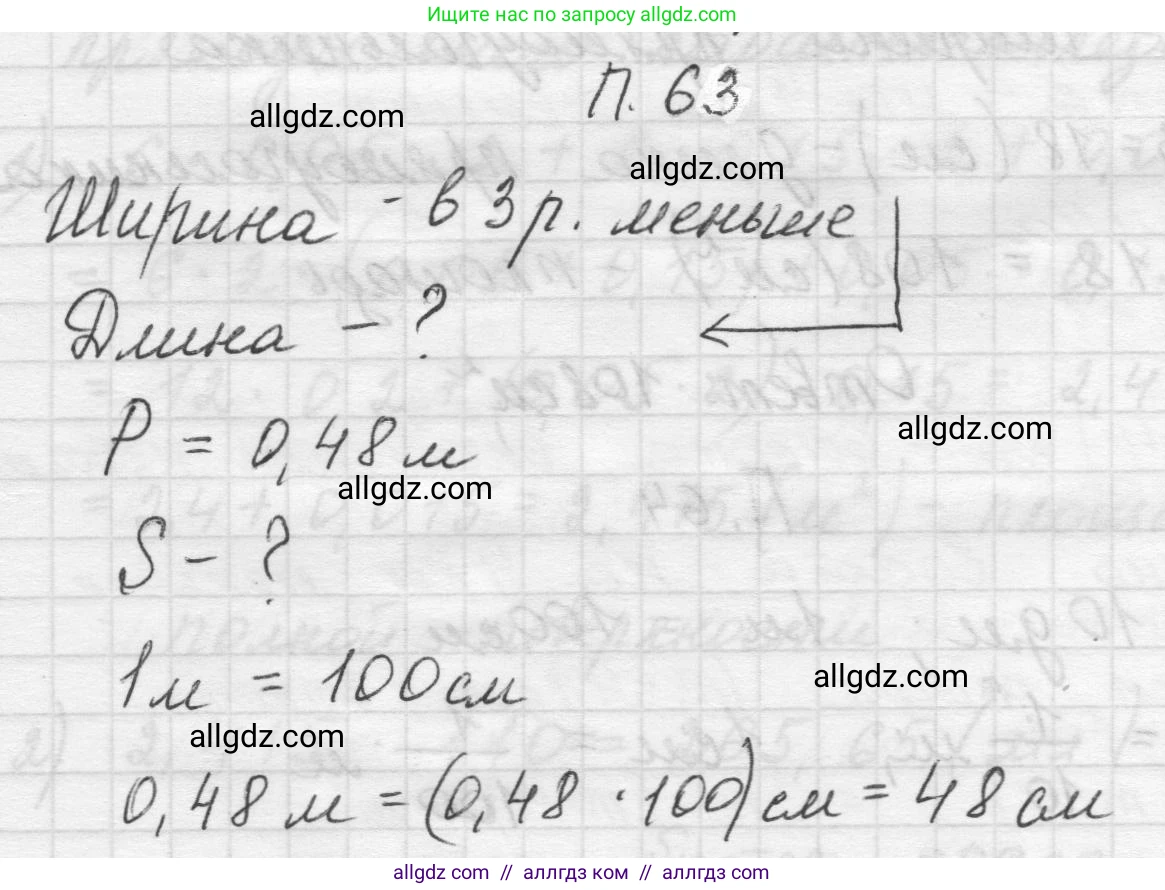 Ищите нас по запросу allgdz.com
П. 63
allgdz.com
allgdz.com
Ширина - в 3 р. меньше
Длина - ?
allgdz.com
P = 0,48 м
allgdz.com
S - ?
1 м = 100 см
allgdz.com
allgdz.com
0,48 м = (0,48 · 100) см = 48 см
allgdz.com // аллгдз ком // аллгдз.com